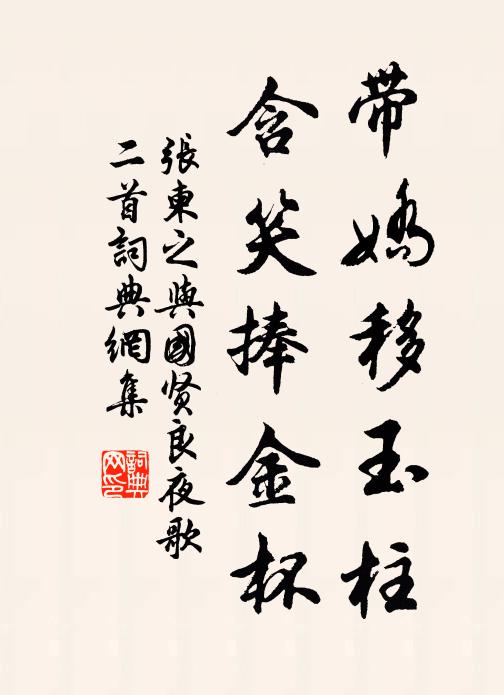 帶嬌移玉柱
含笑捧金杯
張東之與國贤良夜歌
二首詞典網集
詞典网印